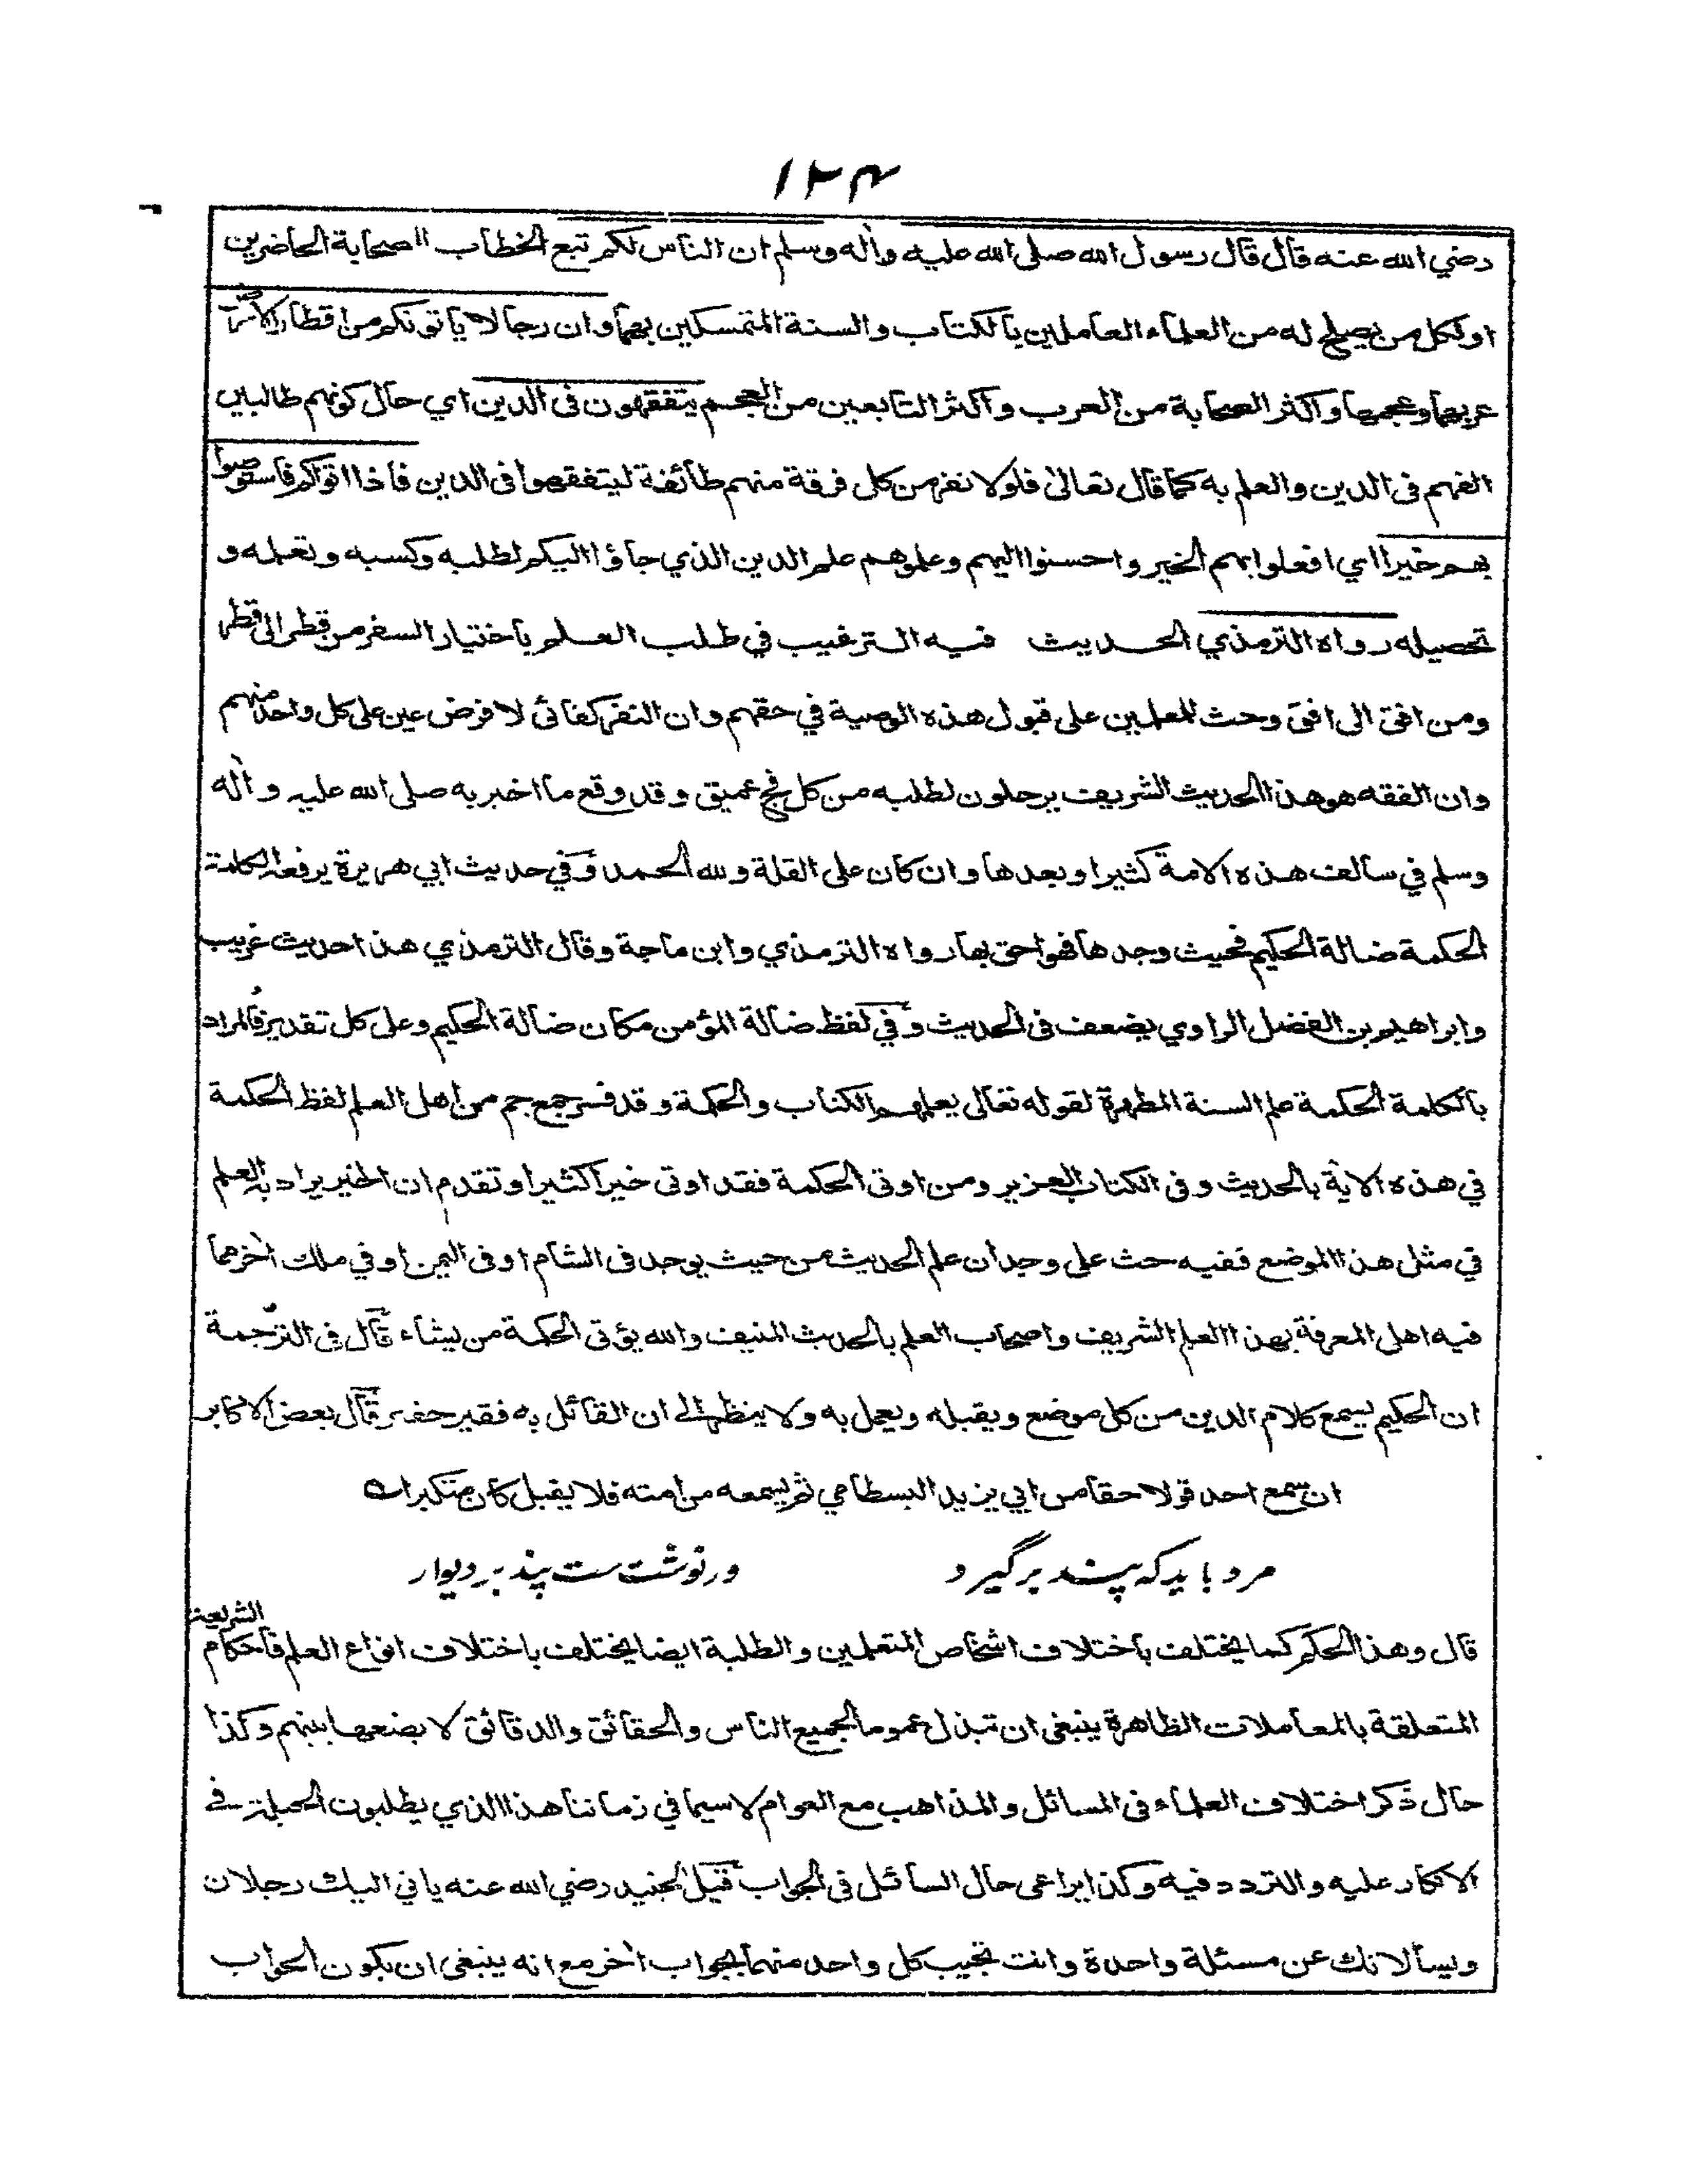 ١٢٤
رضي الله عنه قال قال رسول الله صلى الله عليه وآله وسلم ان الناس لكم تبع الخطاب للصحابة الحاضرين
او لكل من يصلح له من العلماء العاملين بالكتاب والسنة المتمسكين بهما وان رجالا يأتونكم من اقطار الارض
عربها وعجمها واكثر الصحابة من العرب واكثر التابعين من العجم يتفقهون فى الدين اي حال كونهم طالبين
الفهم فى الدين والعلم به كما قال تعالى فلولا نفر من كل فرقة منهم طائفة ليتفقهوا فى الدين فاذا اتوكم فاستوصوا
بهم خيرا اي افعلوا بهم الخير واحسنوا اليهم وعلموهم علم الدين الذي جاؤا اليكم لطلبه وكسبه وتعلمه و
تحصيله رواه الترمذي الحديث فيه الترغيب في طلب العلم باختيار السفر من قطر الى قطر
ومن افق الى افق وحث للمعلمين على قبول هذه الوصية في حقهم وان النفر كفائى لا فرض عين على كل واحد منهم
وان الفقه هو هذا الحديث الشريف يرحلون لطلبه من كل فج عميق وقد وقع ما اخبر به صلى الله عليه وآله
وسلم في سالف هذه الامة كثيرا وبعدها وان كان على القلة ولله الحمد وفي حديث ابي هريرة يرفعه الكلمة
الحكمة ضالة الحكيم فحيث وجدها فهو احق بها رواه الترمذي وابن ماجة وقال الترمذي هذا حديث غريب
وابراهيم بن الفضل الراوي يضعف فى الحديث وفي لفظ ضالة المؤمن مكان ضالة الحكيم وعلى كل تقدير فالمراد
بالكلمة الحكمة علم السنة المطهرة لقوله تعالى يعلمهم الكتاب والحكمة وقد فسر جمع جم من اهل العلم لفظ الحكمة
في هذه الآية بالحديث وفى الكتاب العزيز ومن اوتى الحكمة فقد اوتى خيرا كثيرا وتقدم ان الخير يراد به العلم
في مثل هذا الموضع ففيه حث على وجدان علم الحديث من حيث يوجد فى الشام او فى اليمن او في ملك آخر مما
فيه اهل المعرفة بهذا العلم الشريف واصحاب العلم بالحديث المنيف والله يؤتى الحكمة من يشاء قال فى الترجمة
ان الحكيم يسمع كلام الدين من كل موضع ويقبله ويعمل به ولا ينظر الى ان القائل به فقير حقير قال بعض الاكابر
ان سمع احد قولا حقا من ابي يزيد البسطامي ثم يسمعه من امته فلا يقبل كان متكبرا ه
مرد بايد كه پند بر گيرد ور نوشت ست پند بر ديوار
قال وهذا الحكم كما يختلف باختلاف اشخاص المتعلمين والطلبة ايضا يختلف باختلاف انواع العلم فاحكام الشريعة
المتعلقة بالمعاملات الظاهرة ينبغى ان تبذل عموما لجميع الناس والحقائق والدقائق لا يضعها بينهم وكذا
حال ذكر اختلاف العلماء فى المسائل والمذاهب مع العوام لا سيما في زماننا هذا الذي يطلبون الحيلة في
الانكار عليه والتردد فيه وكذا يراعى حال السائل فى الجواب قيل لجنيد رضي الله عنه ياتي اليك رجلان
ويسألانك عن مسئلة واحدة وانت تجيب كل واحد منهما بجواب آخر مع انه ينبغى ان يكون الجواب